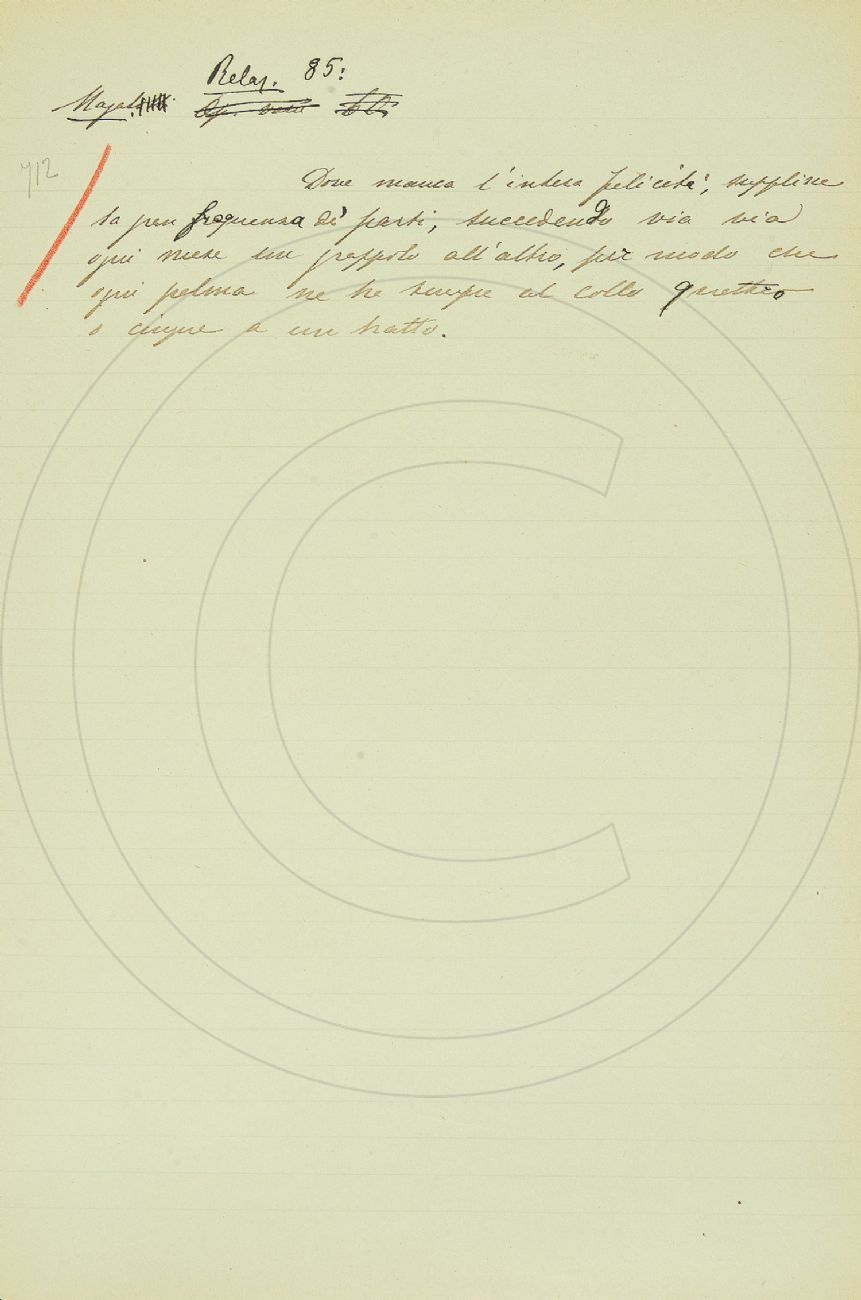 Relaz. 85:
Magal.
712
Dove manca l'intera felicità, supplisce
la gran frequenza de' parti, succedendo via via
ogni mese un grappolo all'altro, per modo che
ogni palma ne ha sempre al collo quattro
o cinque a un tratto.